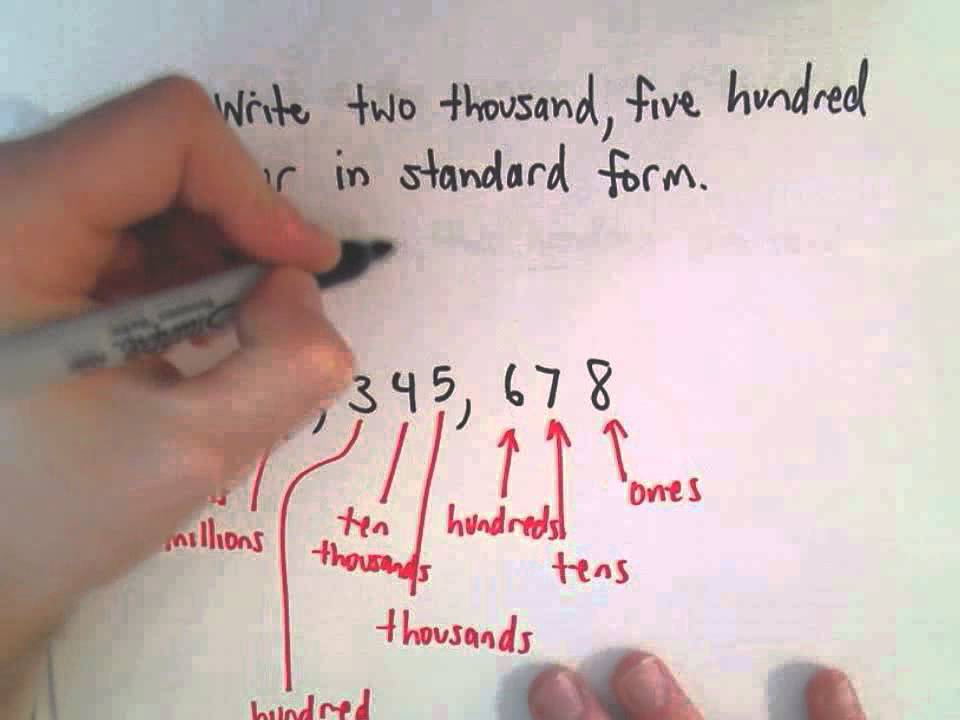 Write two thousand, five hundred
in standard form.
, 3 4 5, 6 7 8
ones
millions
ten
thousands
hundreds
tens
thousands
hundred